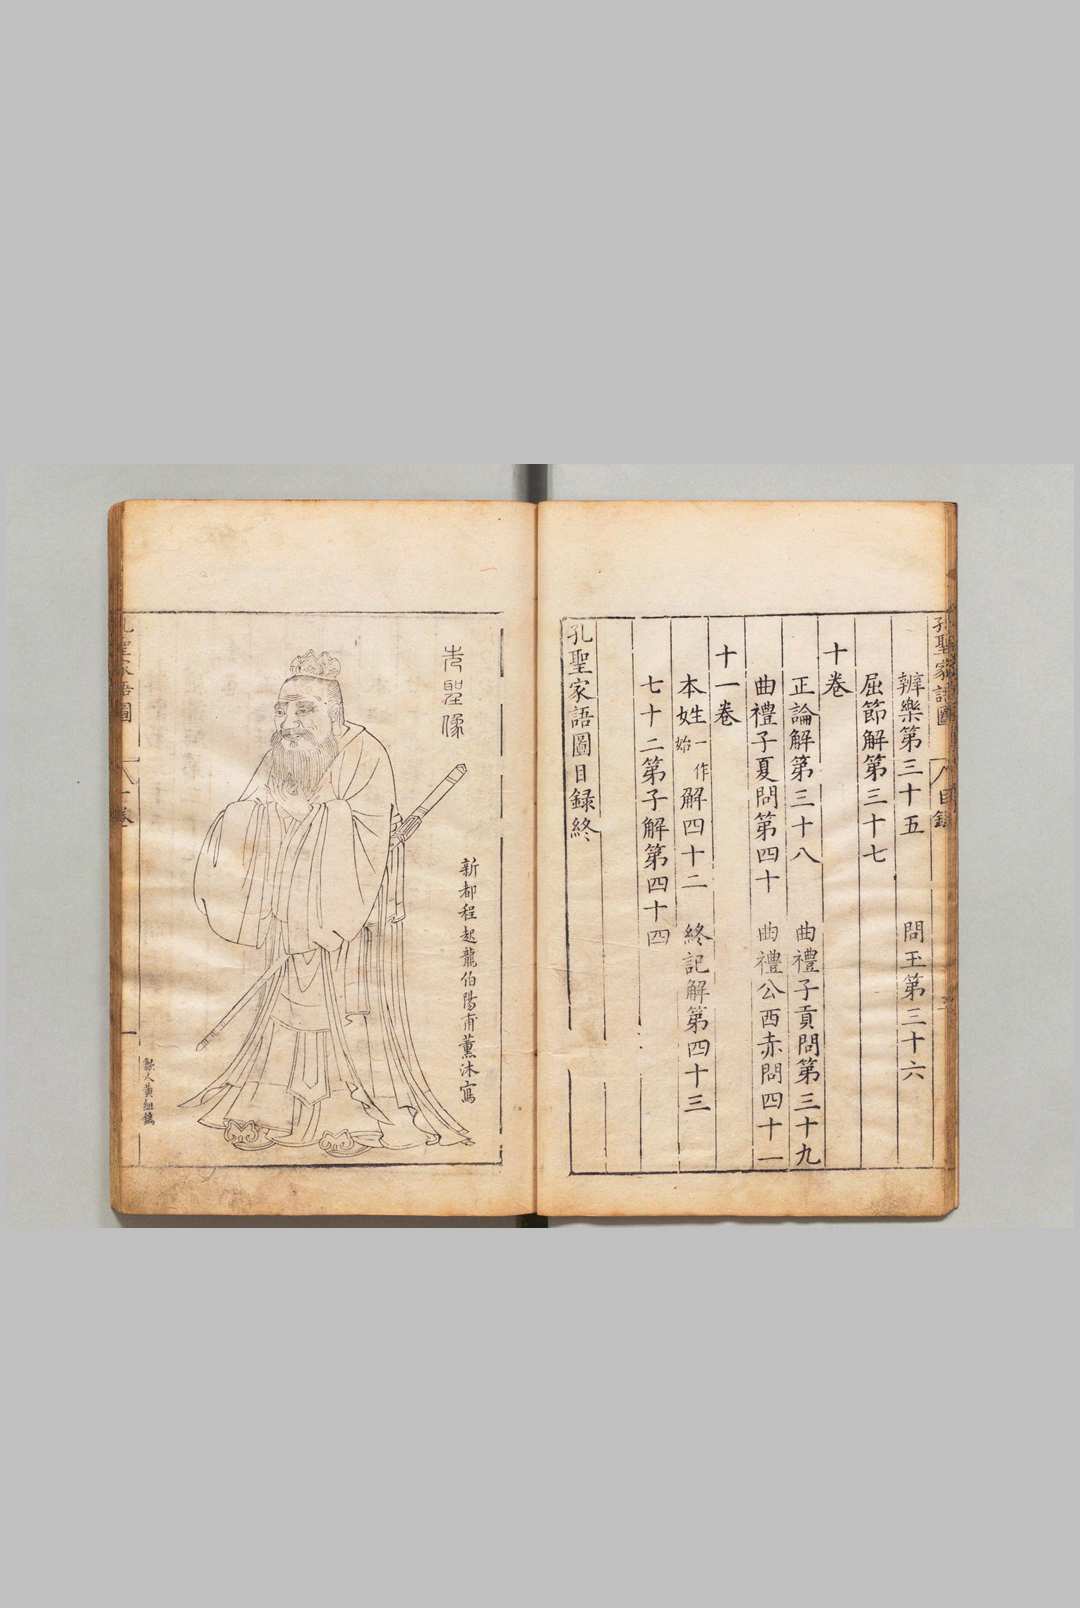 孔聖家語圖 目録
辨樂第三十五 問玉第三十六
屈節解第三十七
十卷
正論解第三十八 曲禮子貢問第三十九
曲禮子夏問第四十 曲禮公西赤問四十一
十一卷
本姓一作始解四十二 終記解第四十三
七十二第子解第四十四
孔聖家語圖目録終
先聖像
新都程起龍伯陽甫薰沐寫
黃組鐫
聖家語圖 一卷
一